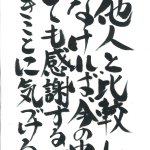 他人と比較し
なければ今の中
ても感謝する
きことに気づける